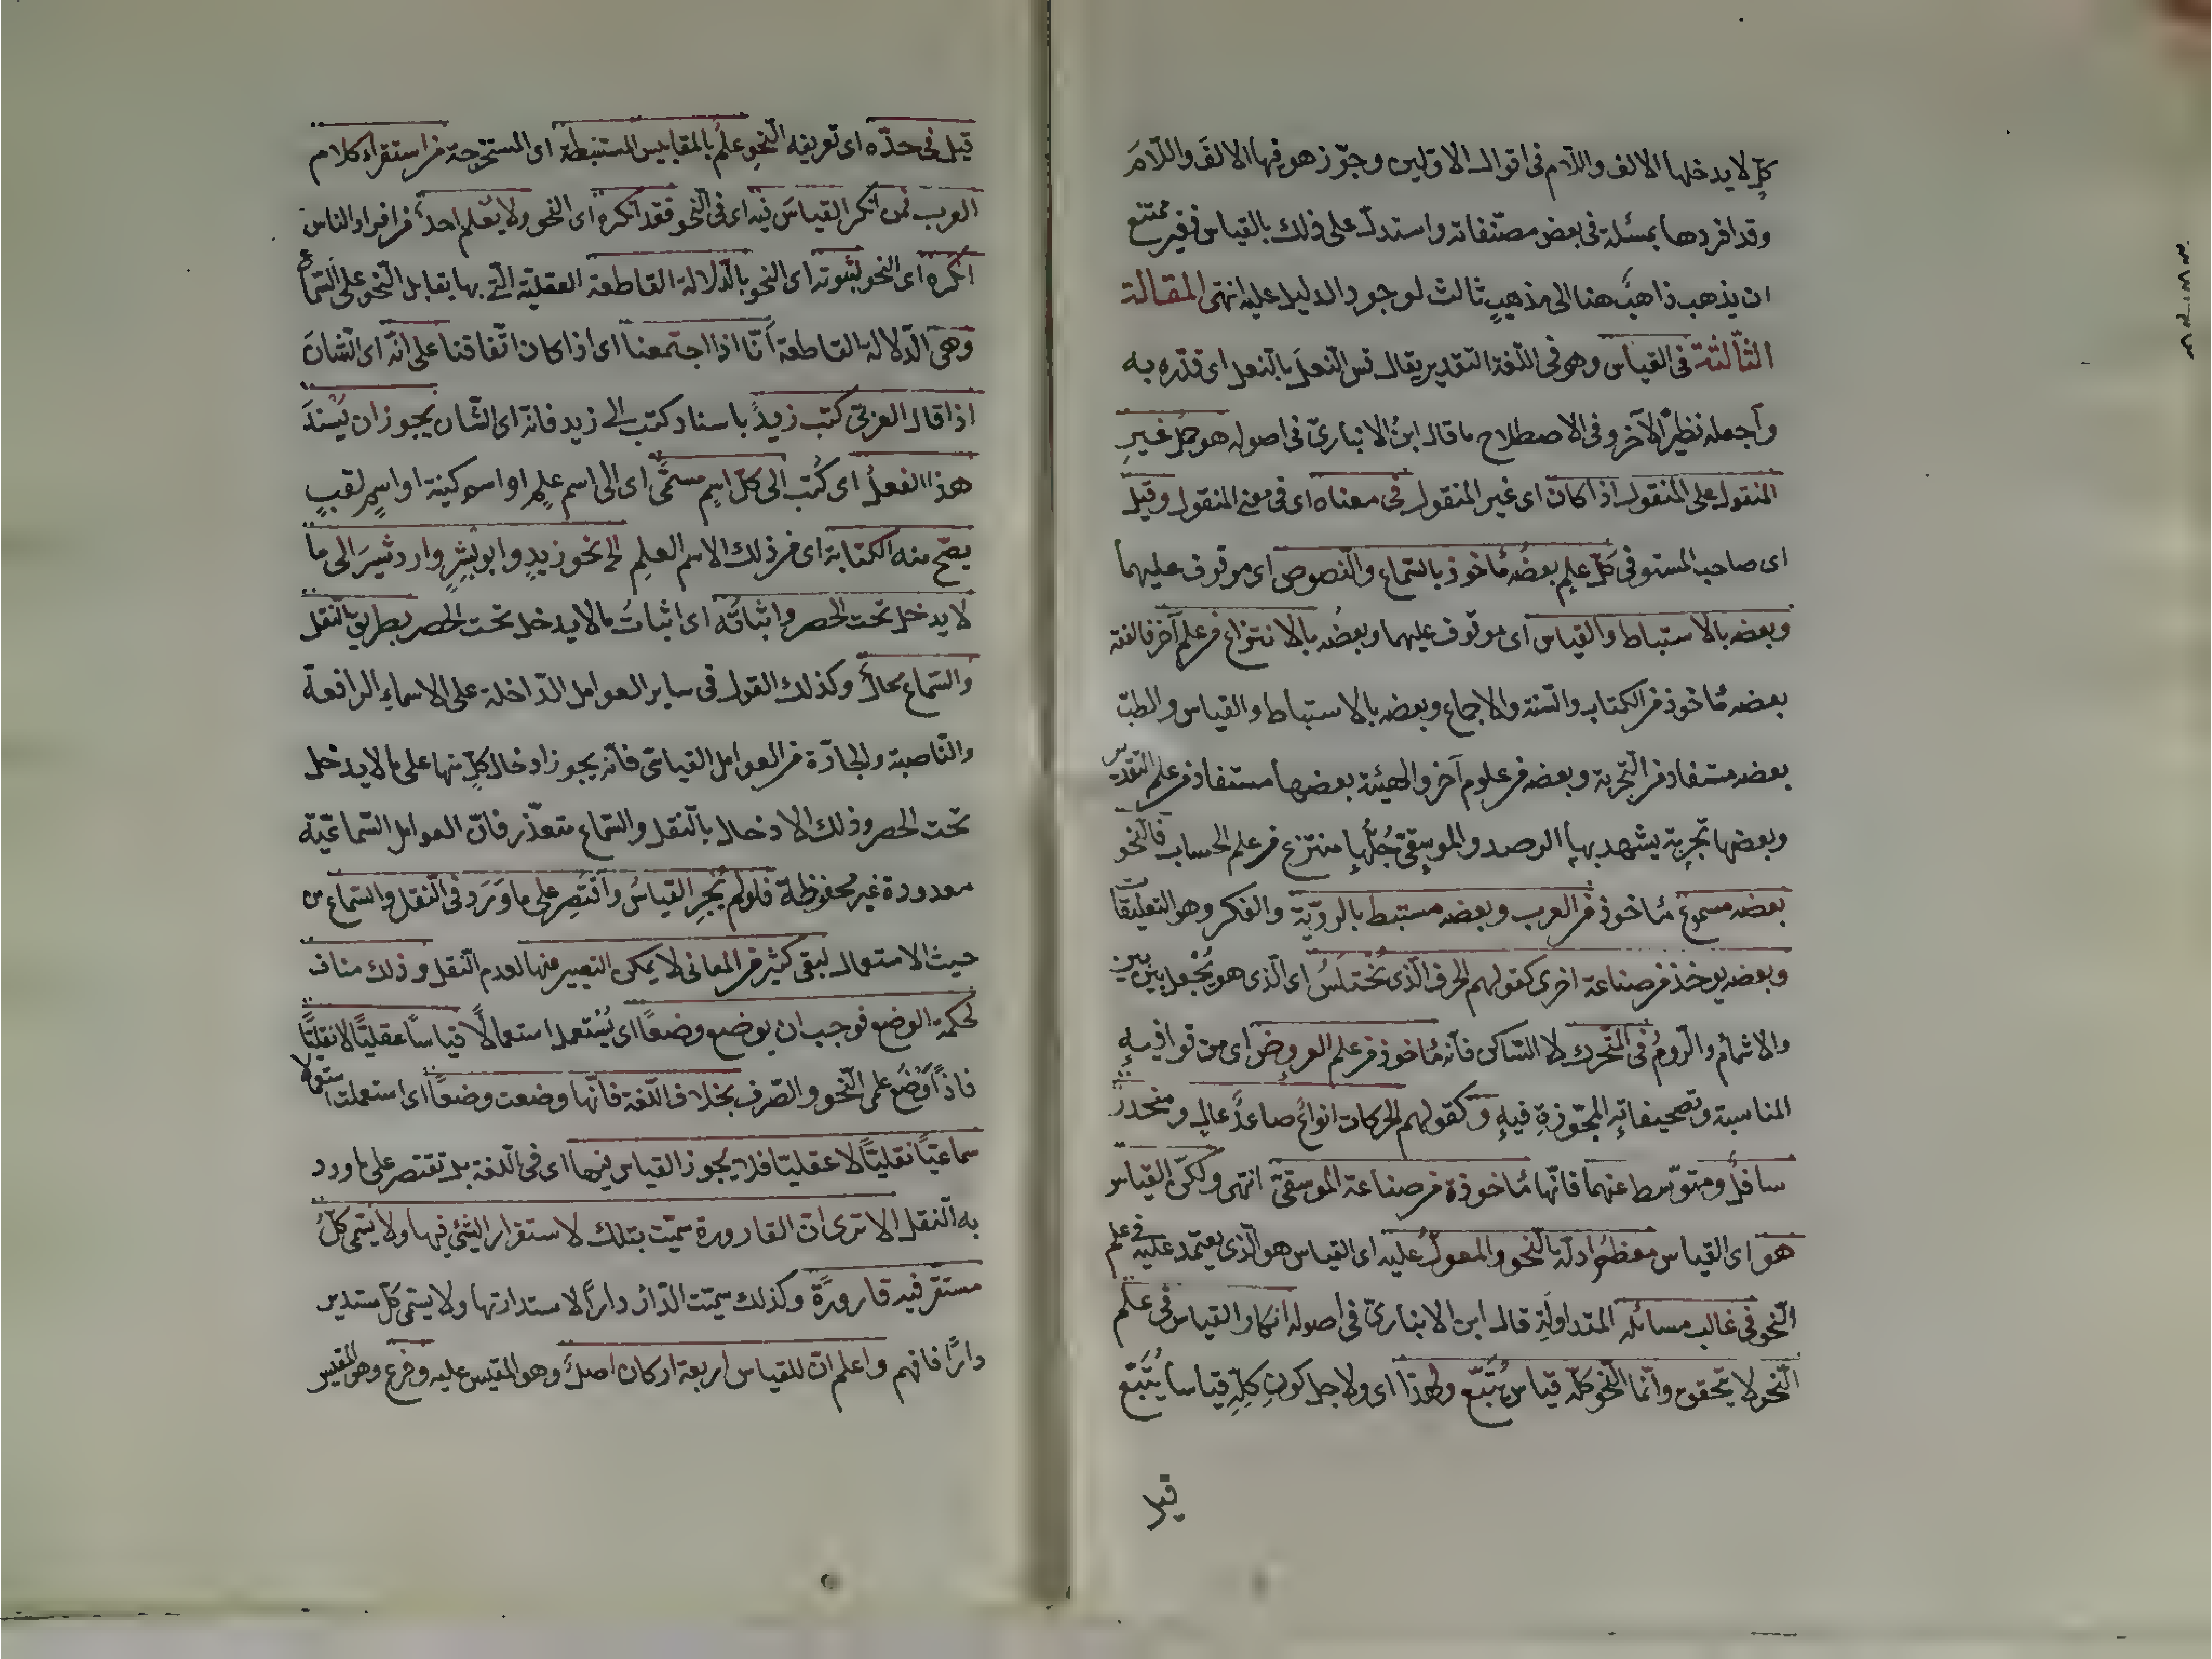 كلّ لا يدخلها الالف واللام فى اقوال الاوّلين وجوّز هو فيها الالفَ واللّامَ
وقد افردها بمسئلة فى بعض مصنّفاته واستدلّ على ذلك بالقياس فغير ممتنع
ان يذهب ذاهبٌ هنا الى مذهبٍ ثالث لوجود الدليل عليه انتهى المقالة
الثّالثة فى القياس وهو فى اللّغة التّقدير يقال قس النّعلَ بالنّعل اى قدّره به
وآجعله نظيرًا لآخر وفى الاصطلاح ما قال ابنُ الانبارىّ فى اصوله هو حمل غيرِ
المنقول على المنقول اذا كان اى غير المنقول فى معناه اى فى معنى المنقول وقيل
اى صاحب المستوفى كلّ علمٍ بعضُه مأخوذ بالسّماع والنّصوص اى موقوف عليهما
وبعضه بالاستباط والقياس اى موقوف عليهما وبعضُه بالانتزاع من علم آخر فالفقه
بعضه مأخوذ من الكتاب والسّنة والاجماع وبعضه بالاستباط والقياس والطبّ
بعضه مستفاد من التّجربة وبعضه من علوم آخر والهيئة بعضها مستفاد من علم التقدير
وبعضها تجربة يشهد بها الرصد والموسِقى جُلُّها منتزع من علم الحساب فالنّحو
بعضه مسموع مأخوذ من العرب وبعضه مستبط بالرويّة والفكر وهو التعليقات
وبعضه يوخذ من صناعة اخرى كقولهم الحرف الّذى تُختلَسُ اى الّذى هو يُجْعل بين بين
والاشمام والرومُ فى المتّحرك لا السّاكن فانّه مأخوذ من علم العروض اى من قوافيهِ
المناسبة وتصحيفاتِهِ المجّوزةِ فيهِ وكقولهم الحركات انواع صاعدٌ عال ومنحدر
سافلٌ ومتوسّط عنهما فانّها مأخوذة من صناعة الموسقىّ انتهى ولكنّ القياس
هو اى القياس معظمُ ادلّة النّحو والمعولُ عليه اى القياس هو الّذى يعتمد عليه فى علم
النّحو فى غالب مسائله المتداولَةِ قال ابن الانبارىّ فى اصوله انكار القياس فى علم
النّحو لا يتحقق وانّما النّحو كلّه قياس يُتَّبع ولهذا اى ولاجل كونِ كلّهِ قياسا يُتَّبَعُ
قيل
قيل فى حدّه اى تعريفه النّحو علمٌ بالمقاييس المستنبطة اى المستخرجة من استقراء كلام
العرب فمن انكر القياسَ فيه اى فى النّحو فقد انكره اى النحو ولا يُعْلم احدٌ من افراد الناس
انكره اى النحو لثبوته اى النحو بالدّلالة القاطعة العقليّة الّتى بها يقابل النّحو على السّماع
وهى الدّلالة القاطعة أنّا اذا اجتمعنا اى اذا كان اتّفاقنا على انّه اى الشّان
اذا قال العربىّ كتب زيدٌ باسناد كتب الى زيد فانّه اى الشّان يجوز ان يُسْندَ
هذا الفعلُ اى كُتب الى كلّ اسمٍ مسمًّى اى الى اسم علمٍ او اسم كنية او اسمٍ لقبٍ
يصّح منه الكتابة اى من ذلك الاسم العلم الخ نحو زيدٍ وابو بشْرٍ واردشيرَ الى ما
لا يدخل تحت الحصر واثباتُه اى اثباتُ مالا يدخل تحت الحصر بطريق النّقل
والسّماع محالٌ وكذلك القول فى ساير العوامل الدّاخلة على الاسماءِ الرافعة
والنّاصبة والجارّة من العوامل القياسى فانّه يجوز ادخال كلٍّ منها على ما لا يدخل
تحت الحصر وذلك الادخال بالنّقل والسّماع متعذّر فانّ العوامل السّماعيّة
معدودة غير محفوظة فلو لم يُجز القياسُ وآقتُصِر على ما وَرَد فى النّقل والسّماع من
حيث الاستعمال لبقى كثير من المعانى لا يمكن التعبير عنها لعدم النّقل وذلك مناف
لحكمة الوضع فوجب ان يوضع وضعًا اى يُسْتعمل استعمالًا قياسًا عقليًّا لا نقليًّا
فاذًا وُضِع علمى النّحو والصّرف بخلاف اللّغة فانّها وضعت وضعًا اى استعملت استعمالا
سماعيًّا نقليًّا لا عقليّا فلا يجوز القياس فيها اى فى اللّغة بل نقتصر على ما ورد
به النّقل الا ترى انّ القارورة سمّيت بتلك لاستقرار الشّئ فيها ولا يسّمى كلُّ
مستقرّ فيه قارورةً وكذلك سمّيت الدّار دارًا لاستدارتها ولا يسمّى كلّ مستدير
دارًا فافهم واعلم انّ للقياس اربعة اركان اصلٌ وهو المقيس عليه وفرع وهو المقيس